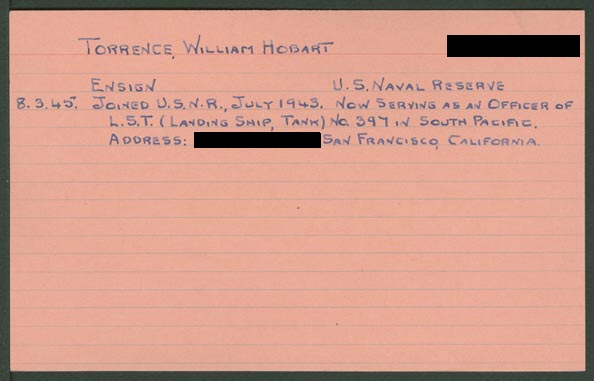 TORRENCE, WILLIAM HOBART
ENSIGN U.S. NAVAL RESERVE
8.3.45. JOINED U.S.N.R., JULY 1943. NOW SERVING AS AN OFFICER OF
L.S.T. (LANDING SHIP, TANK) NO. 397 IN SOUTH PACIFIC.
ADDRESS: SAN FRANCISCO, CALIFORNIA.